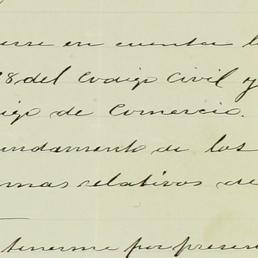 en cuenta l
8 del Codigo Civil y
igo de Comercio.
undamento de los
mas relativos de
tenerme por presen